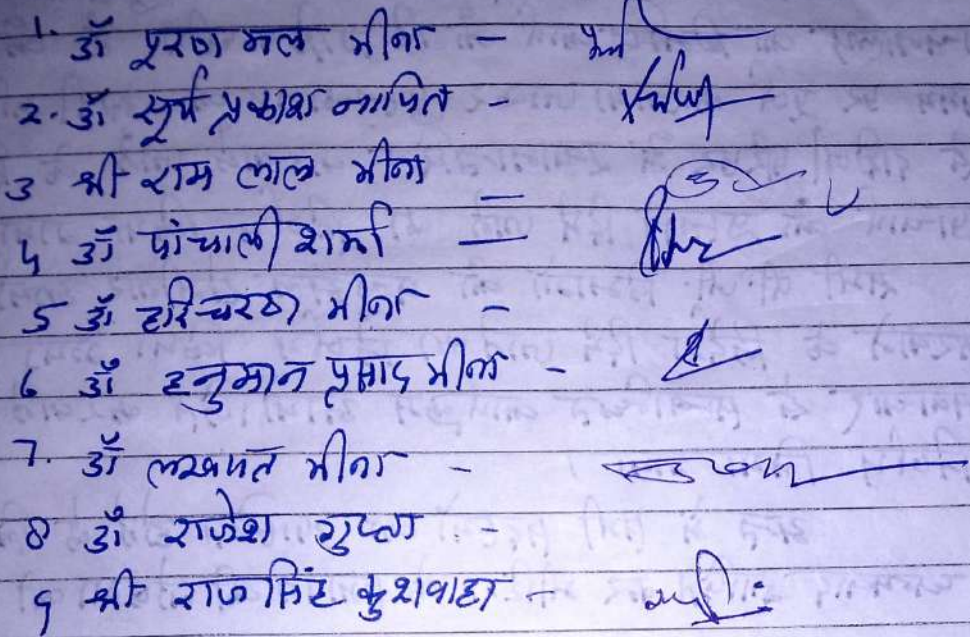 1. डॉ पूरण मल मीना -
2. डॉ सूर्य प्रकाश नापित -
3 श्री राम लाल मीना -
4 डॉ पांचाली शर्मा -
5 डॉ हरिचरण मीना -
6 डॉ हनुमान प्रसाद मीना -
7. डॉ लखपत मीना -
8 डॉ राजेश गुप्ता -
9 श्री राज सिंह कुशवाहा -